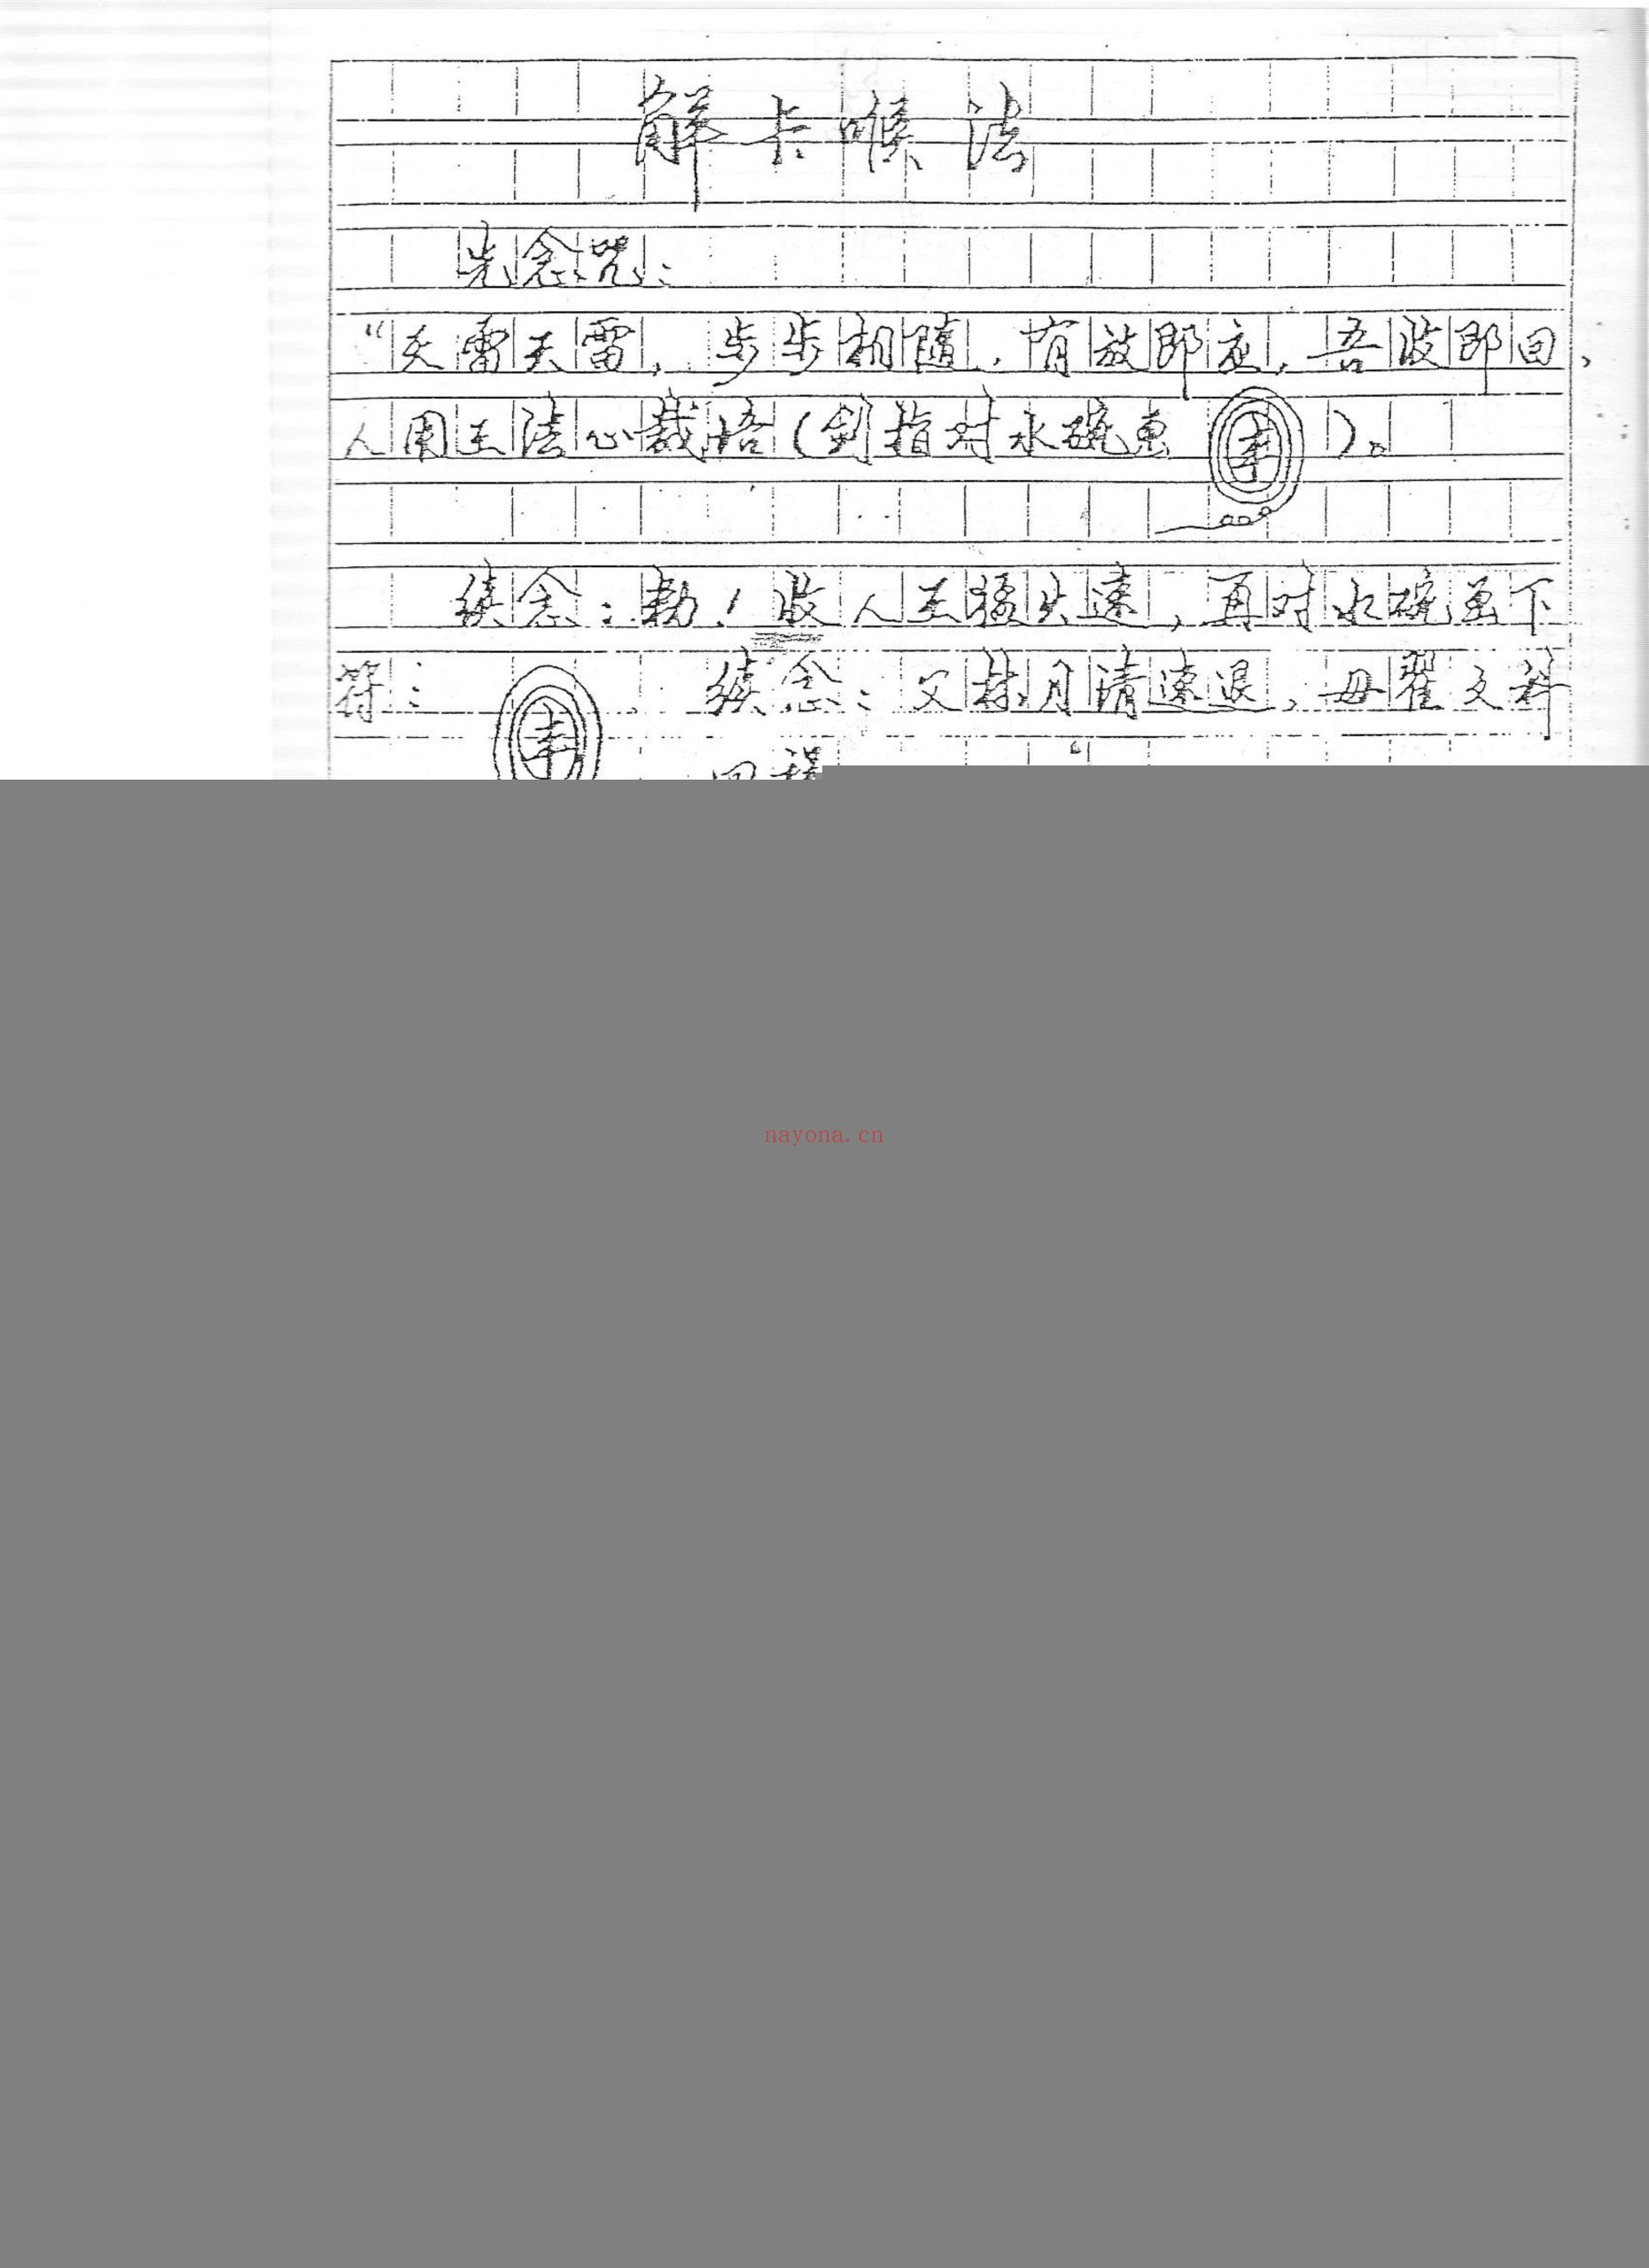 解卡喉法
先念咒：
“天雷天雷，步步相随，有放即应，吾收即回，
人用王法心裁悟（剑指对水碗画）。
续念：勅！收人王 速，再对水碗画下
符： 续念：父 月清速退，母翟文科
nayona.cn